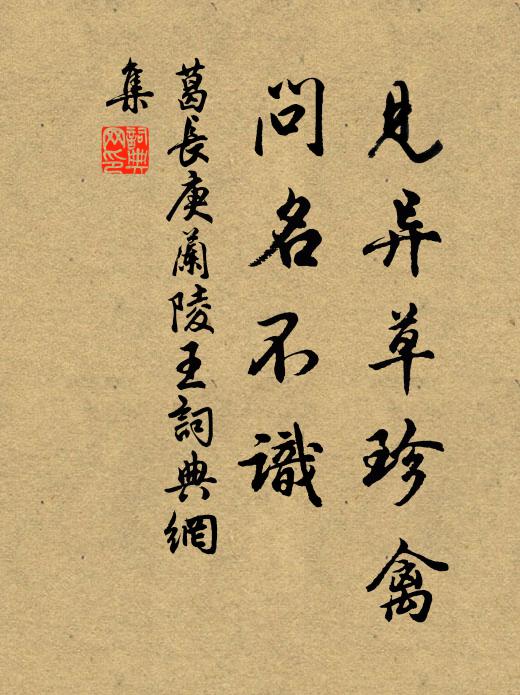 見异草珍禽
問名不識
葛長庚蘭陵王詞典網
集
詞典
网印